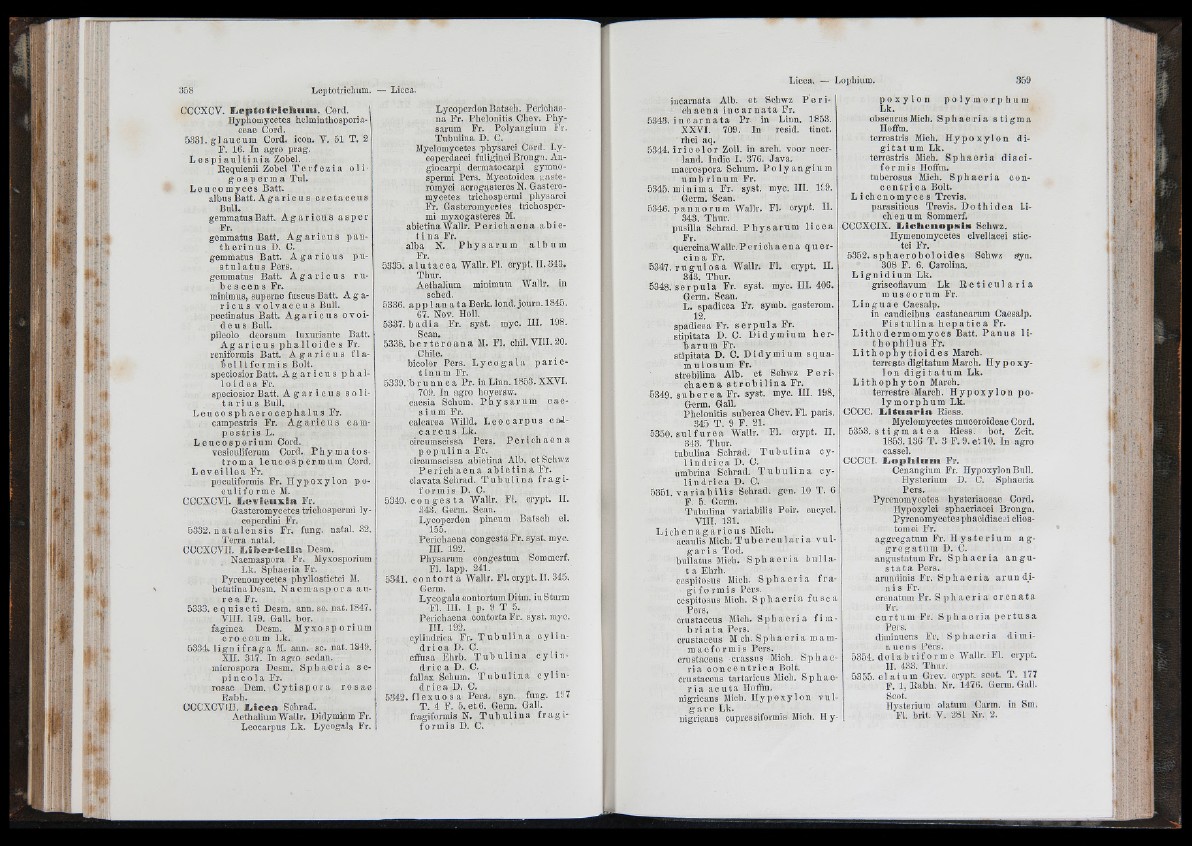 358 Leptotrichum. — Licea.
CCCXCV. Leptotrichum. Cord.
Hyphomycetes helminthosporia-
ceae Cord.
5331. glaucum Cord. icon. V. 51 T. 2
F. 16. In agro prag.
Lespiaultinia Zobel.
Requienii Zobel Terfezia oli-
gosperma Tul.
Leucomyces Batt.
albus Batt. Agaricus cretaceus
Bull.
gemmatus Batt. Agaricus asper
Fr.
gemmatus Batt. Agaricus pan-
therinus D. C.
gemmatus Batt. Agaricus pu-
stulatus Pers.
gemmatus Batt. Agaricus ru-
bescens Fr.
minimus, superne fuscus Batt. Aga-
ricus volvaceus Bull.
pectinatus Batt. Agaricus ovoi-
deus Bull.
pileolo deorsum luxuriante Batt.
Agaricus phalloides Fr.
reniformis Batt. Agaricus fla-
belliformis Bolt.
speciosior Batt. Agaricus phal-
loides Fr.
speciosior Batt. Agaricus soli-
tarius Bull.
Leucosphaerocephalus Fr.
campestris Fr. Agaricus cam-
pestris L.
Leucosporium Cord.
vesiculiferum Cord. Phymatos-
troma leucospermum Cord.
Leveillea Fr.
poculiformis Fr. Hypoxylon po-
culiforme M.
CCCXCVI. Levieuxia Fr.
Gasteromycetes trichospermi ly-
coperdini Fr.
5332. natalensis Fr. fung. natal. 32.
Terra natal.
CCCXCVII. Libertella Desm.
Naemaspora Fr. Myxosporium
Lk. Sphaeria Fr.
Pyrenomycetes phyllostictei M.
betulina Desm. Naemaspora au-
rea Fr.
5333. equiseti Desm. ann. sc. nat. 1847.
VIII. 179. Gall. bor.
faginea Desm. Myxosporium
croceum Lk.
5334. lignifraga M. ann. sc. nat. 1849.
XII. 317. In agro sedan.
microspora Desm. Sphaeria se-
pincola Fr.
rosae Dem. Cytispora rosae
Rabh.
CCCXCVIII. Licea Schrad.
Aethalium Wallr. Didymium Fr.
Leocarpus Lk. Lycogala Fr.
Lycoperdon Batsch. Perichae-
na Fr. Phelonitis Chev. Phy-
sarum Fr. Polyangium Fr.
Tubulina D. C.
Myelomycetes physarei Cord. Ly-
coperdacei fuliginei Brongn. An-
giocarpi dermatocarpi gymno-
spermi Pers. Mycetoidea gaste-
romyci aerogasteres N. Gastero-
mycetes trichospermi physarei
Fr. Gasteromycetes trichosper-
mi myxogasteres M.
abietina Wallr. Perichaena abie-
tina Fr.
alba N. Physarum album
Fr.
5335. alutacea Wallr. Fl. crypt. II. 343.
Thur.
Aethalium minimum Wallr. in
sched.
5336. applanata Berk. lond. journ. 1845.
67. Nov. Holl.
5337. badia Fr. syst. myc. III. 198.
Scan.
5338. berteroana M. Fl. chil. VIII. 20.
Chile.
bicolor Pers. Lycogala parie-
tinum Fr.
5339. brunnea Pr. in Linn. 1853. XXVI.
709. In agro hoyersw.
caesia Schum. Physarum cae-
sium Fr.
calcarea Willd. Leocarpus cal-
careus Lk.
circumscissa Pers. Perichaena
populina Fr.
circumscissa abietina Alb. et Schwz
Perichaena abietina Fr.
clavata Schrad. Tubulina fragi-
formis D. C.
5340. congesta Wallr. Fl. crypt. II.
343. Germ. Scan.
Lycoperdon pineum Batsch el.
155.
Perichaena congesta Fr. syst. myc.
III. 192.
Physarum congestum Sommerf.
Fl. lapp. 241.
5341. contorta Wallr. Fl. crypt. II. 345.
Germ.
Lycogala contortum Ditm. in Sturm
Fl. III. 1 p. 9 T 5.
Perichaena contorta Fr. syst. myc.
III. 192.
cylindrica Fr. Tubulina cylin-
drica D. C.
effusa Ehrb. Tubulina cylin-
drica D. C.
fallax Schum. Tubulina cylin-
drica D. C.
5342. flexuosa Pers. syn. fung. 197
T. 4 F. 5. et 6. Germ. Gall.
fragiformis N. Tubulina fragi-
formis D. C.
Licea. — Lophium. 359
incarnata Alb. et Schwz Peri-
chaena incarnata Fr.
5343. incarnata Pr. in Linn. 1853.
XXVI. 709. In resid. tinct.
rhei aq.
5344. iricolor Zoll. in arch. voor neer-
land. Indie I. 376. Java.
macrospora Schum. Polyangium
umbrinum Fr.
5345. minima Fr. syst. myc. III. 199.
Germ. Scan.
5346. pannorum Wallr. Fl. crypt. II.
343. Thur.
pusilla Schrad. Physarum licea
Fr.
quercina Wallr. Perichaena quer-
cina Fr.
5347. rugulosa Wallr. Fl. crypt. II.
343. Thur.
5348. serpula Fr. syst. myc. III. 406.
Germ. Scan.
L. spadicea Fr. symb. gasterom.
12.
spadicea Fr. serpula Fr.
stipitata D. C. Didymium her-
barum Fr.
stipitata D. C. Didymium squa-
mulosum Fr.
strobilina Alb. et Schwz Peri-
chaena strobilina Fr.
5349. suberea Fr. syst. myc. III. 198.
Germ. Gall.
Phelonitis suberea Chev. Fl. paris.
345 T. 9 F. 21.
5350. sulfurea Wallr. Fl. crypt. II.
343. Thur.
tubulina Schrad. Tubulina cy-
lindrica D. C.
umbrina Schrad. Tubulina cy-
lindrica D. C.
5351. variabilis Schrad. gen. 10 T. 6
F. 5. Germ.
Tubulina variabilis Poir. encycl.
VIII. 131.
Lichenagaricus Mich.
acaulis Mich. Tubercularia vul-
garis Tod.
bullatus Mich. Sphaeria bulla-
ta Ehrb.
cespitosus Mich. Sphaeria fra-
giformis Pers.
cespitosus Mich. Sphaeria fusca
Pers.
crustaceus Mich. Sphaeria fim-
briata Pers.
crustaceus Mich. Sphaeria mam-
maeformis Pers.
crustaceus crassus Mich. Sphae-
ria concentrica Bolt.
crustaceus tartaricus Mich. Sphae-
ria acuta Hoffm.
nigricans Mich. Hypoxylon vul-
gare Lk.
nigricans cupressiformis Mich. Hy-
poxylon polymorphum
Lk.
obscurus Mich. Sphaeria stigma
Hoffm.
terrestris Mich. Hypoxylon di-
gitatum Lk.
terrestris Mich. Sphaeria disci-
formis Hoffm.
tuberosus Mich. Sphaeria con-
centrica Bolt.
Lichenomyces Trevis.
parasiticus Trevis. Dothidea li-
chenum Sommerf.
CCCXCIX. Lichenopsis Schwz.
Hymenomycetes elvellacei stic-
tei Fr.
5352. sphaeroboloides Schwz syn.
308 F. 6. Carolina.
Lignidium Lk.
griseoflavum Lk Reticularia
muscorum Fr.
Linguae Caesalp.
in caudicibus castanearum Caesalp.
Fistulina hepatica Fr.
Lithodermomyces Batt. Panus li-
thophilus Fr.
Lithophytioides March.
terreste digitatum March. Hypoxy-
lon digitatum Lk.
Lithophyton March.
terrestre March. Hypoxylon po-
lymorphum Lk.
CCCC. Lituaria Riess.
Myelomycetes mucoroideae Cord.
5353. stigmatea Riess. bot. Zeit.
1853. 136 T. 3 F. 9. et 10. In agro
cassel.
CCCCI. Lophium Fr.
Cenangium Fr. Hypoxylon Bull.
Hysterium D. C. Sphaeria
Pers.
Pyrenomycetes hysteriaceae Cord.
Hypoxylei sphaeriacei Brongn.
Pyrenomycetes phacidiacei clios-
tomei Fr.
aggregatum Fr. Hysterium ag-
gregatum D. C.
angustatum Fr. Sphaeria angu-
stata Pers.
arundinis Fr. Sphaeria arundi-
nis Fr.
crenatum Fr. Sphaeria crenata
Fr.
curtum Fr. Sphaeria pertusa
Pers.
diminuens Fr. Sphaeria dimi-
nuens Pers.
5354. dolabriforme Wallr. Fl. crypt.
II. 433. Thur.
5355. elatum Grev. crypt. scot. T. 177
F. 1, Rabh. Nr. 1476. Germ. Gall.
Scot.
Hysterium elatum Carm. in Sm.
Fl. brit. V. 281 Nr. 2.